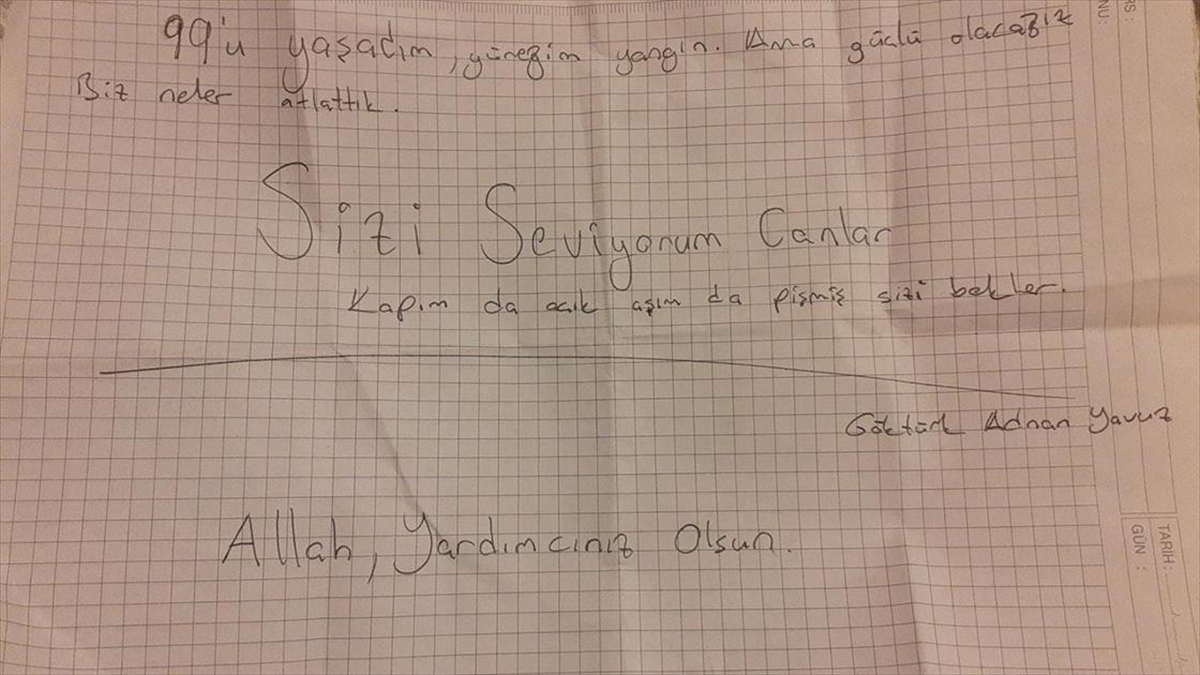 99'u yaşadım, yüreğim yangın. Ama güçlü olacağız
Biz neler atlattık.
Sizi Seviyorum Canlar
Kapım da açık aşım da pişmiş sizi bekler.
Göktürk Adnan Yavuz
Allah, Yardımcınız Olsun.
TARIH:
GÜN :